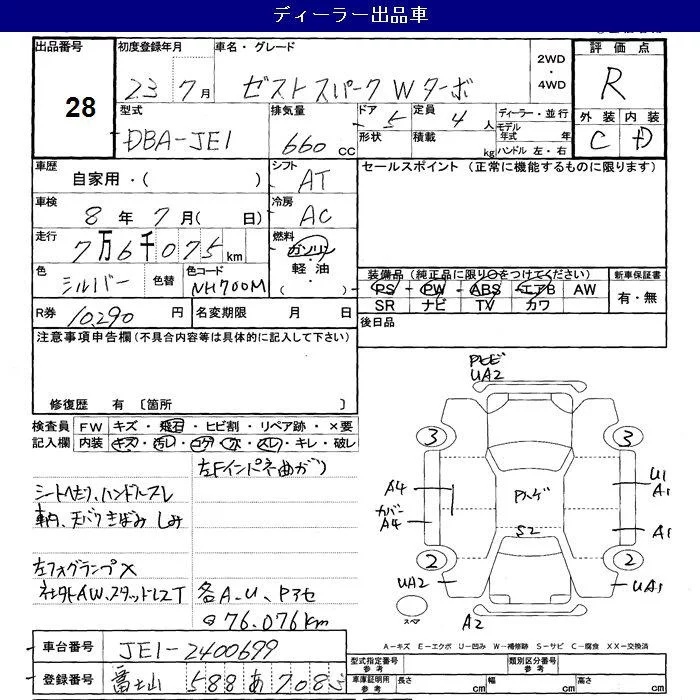 ディーラー出品車
出品番号 初度登録年月 車名・グレード 評価点
28 23 7月 ゼストスパーク Wターボ 2WD・4WD R
型式 排気量 ドア 定員 ディーラー・並行 外装 内装
DBA-JE1 660cc 5 4人 モデル年式 年 C D
形状 積載 kg ハンドル 左・右
車歴 シフト セールスポイント (正常に機能するものに限ります)
自家用・( ) AT
車検 冷房
8年 7月( 日) AC
走行 燃料
7万6千075km ガソリン
軽・油
色 色替 色コード 装備品 (純正品に限り○をつけてください) 新車保証書
シルバー NH700M ( ) PS PW ABS エアB AW 有・無
SR ナビ TV カワ
R券 10,290円 名変期限 月 日 後日品
注意事項申告欄 (不具合内容等は具体的に記入して下さい)
修復歴 有 〔箇所 〕
検査員記入欄 FW キズ・飛石・ヒビ割・リペア跡・×要
内装 キズ・汚レ・コゲ・穴・スレ・キレ・破レ
左Fインパネ曲がり
シートヘタリ、ハンドルスレ
車内、天バリきばみ しみ
左フォグランプ×
社外AW、スタッドレスT 各A-U、Pアセ
@76,076km
車台番号 JE1-2400699
登録番号 富士山 588 あ 708
Pハゼ
UA2
3 3
A4 Pハゲ U1
A1
カバー
A4 S2 A1
2 2
UA2 UA1
スペア A2
A=キズ E=エクボ U=凹み W=補修跡 S=サビ C=腐食 XX=交換済
型式指定番号 参考 類別区分番号 参考
車庫証明用 参考 長さ cm 幅 cm 高さ cm